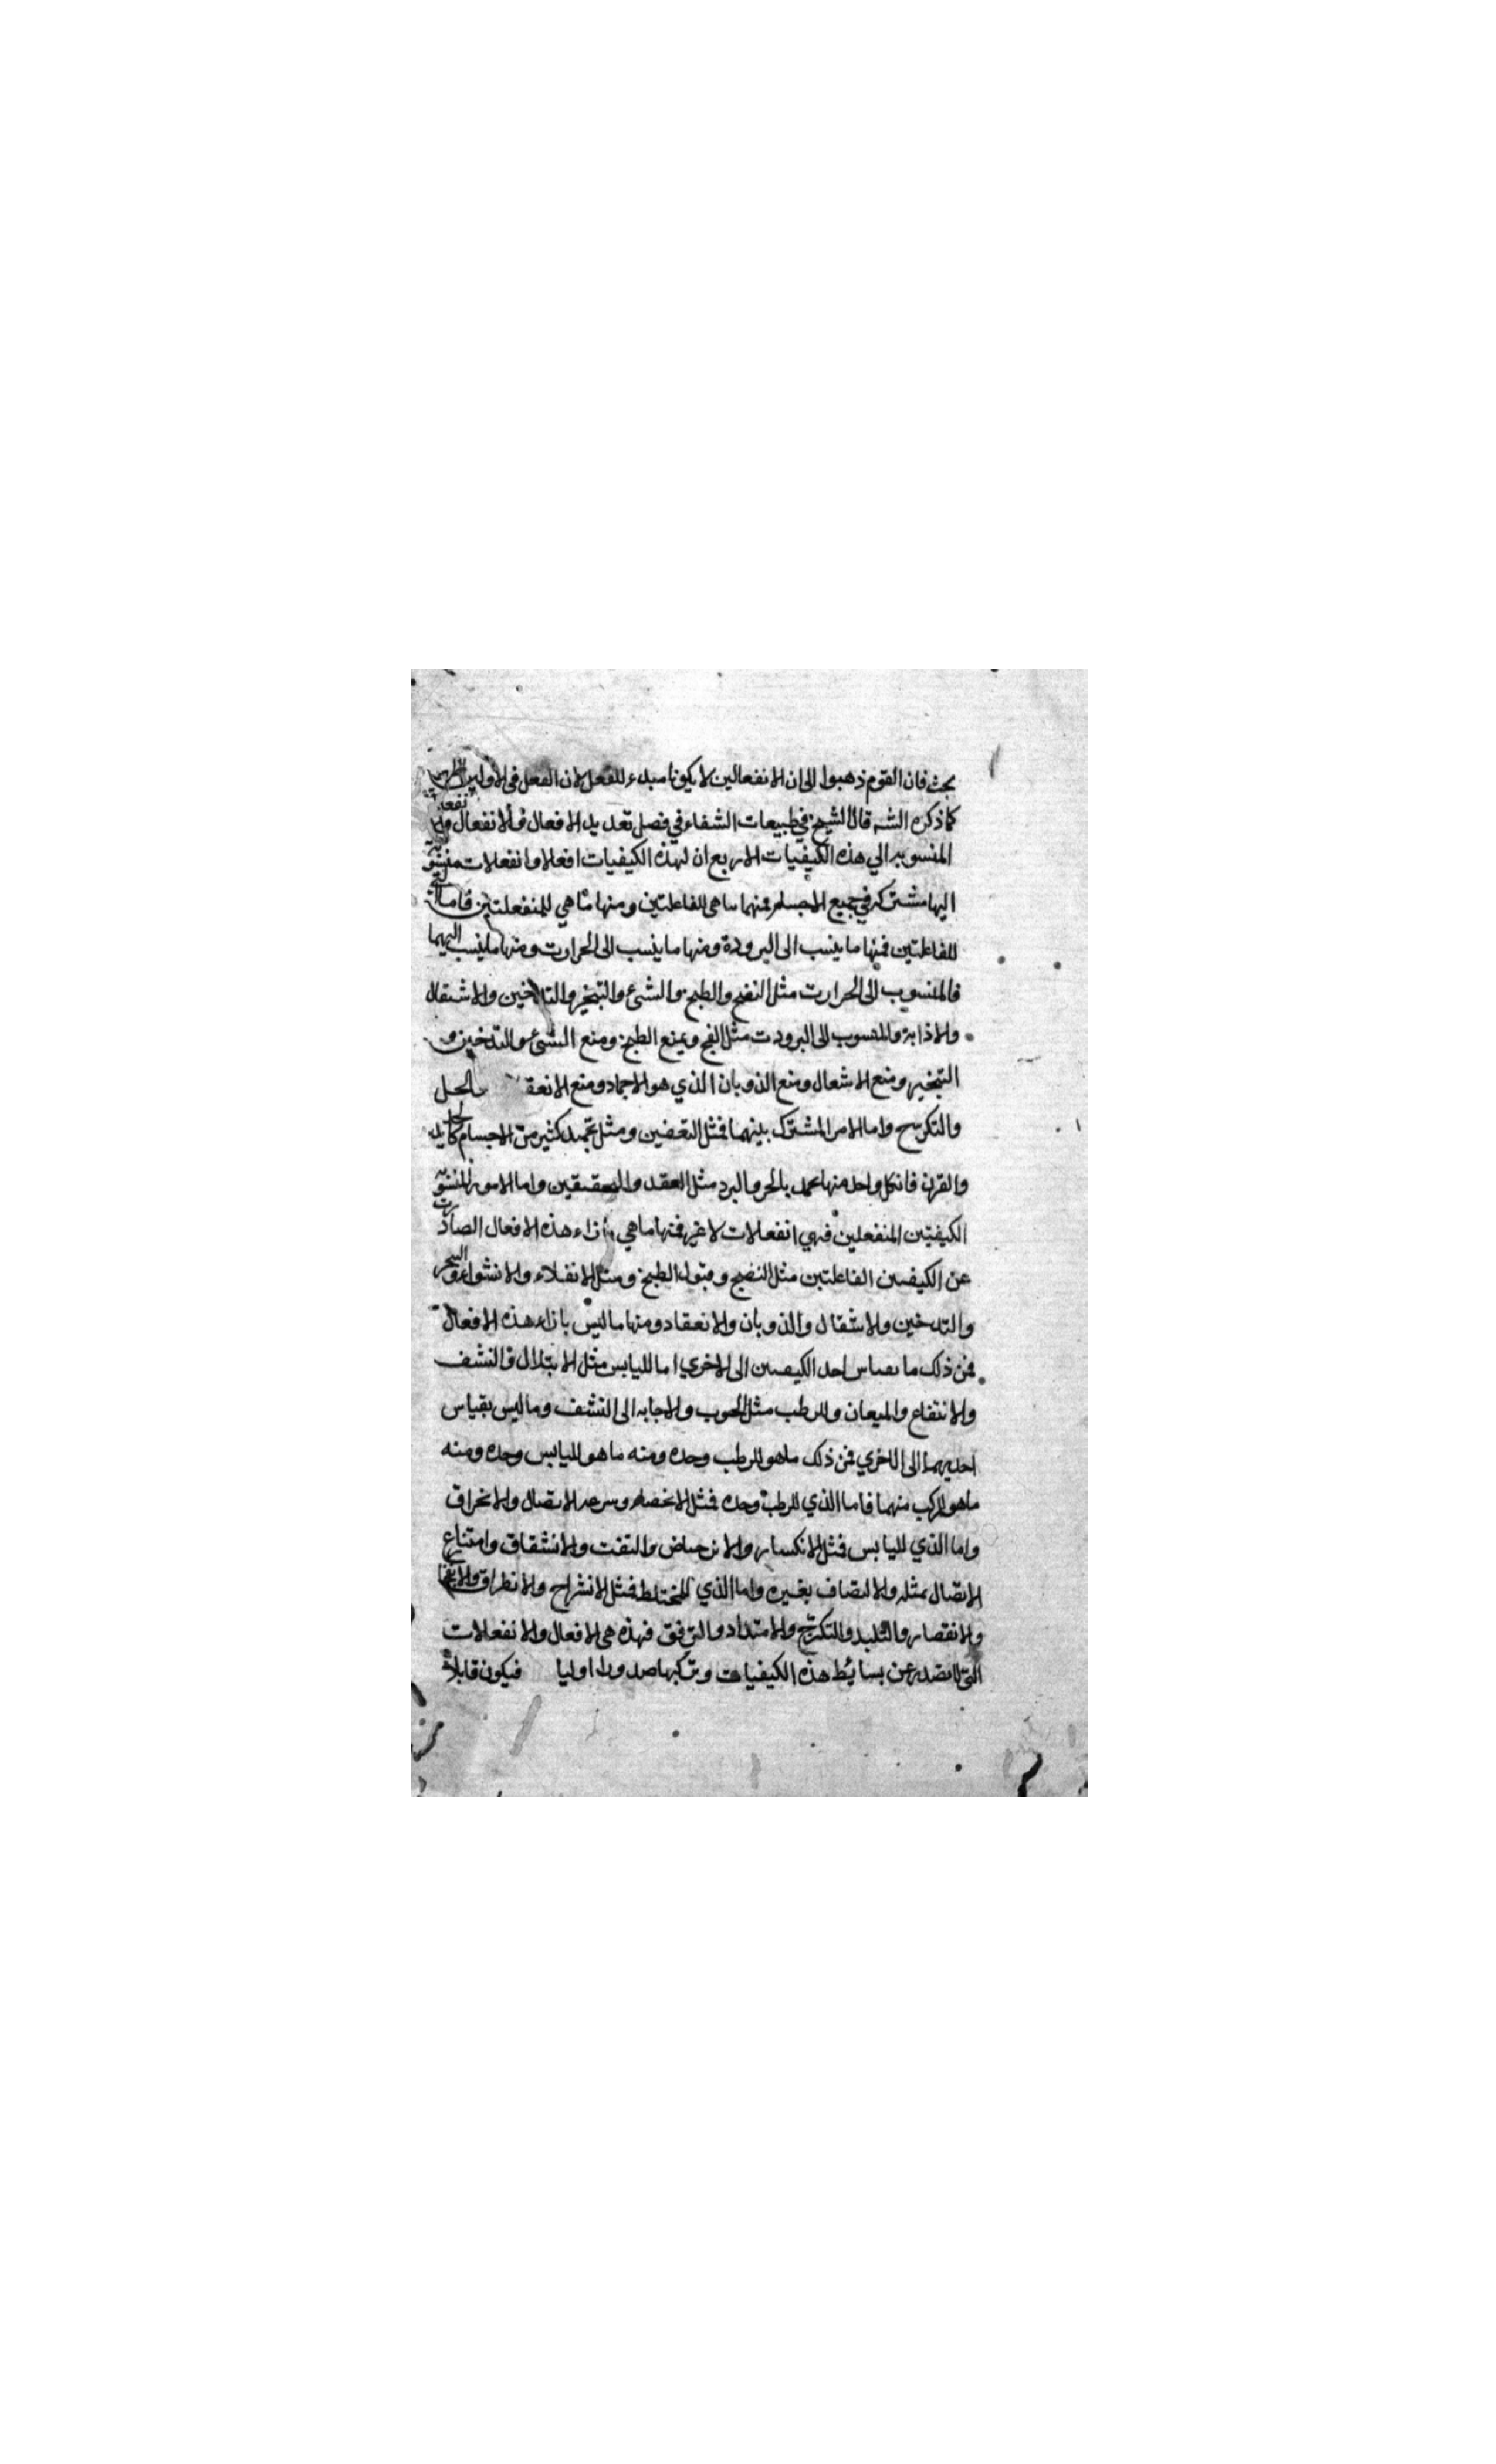 بحث فان القوم ذهبوا الى ان الانفعالين لا يكونا مبدء للفعل لان الفعل فى الاولين
كما ذكره الشه قال الشيخ في طبيعات الشفاء في فصل تعديد الافعال والانفعال
المنسوبه الي هذه الكيفيات الاربع ان لهذه الكيفيات افعالا وانفعلات منسوبة
اليها مشتركه في جميع الاجسام فمنها ما هى للفاعلتين ومنها ما هي للمنفعلتين فاما التى
للفاعلتين فمنها ما ينسب الى البرودة ومنها ما ينسب الى الحرارت ومنها ما ينسب اليهما
فالمنسوب الى الحرارت مثل النضج والطبخ والشئ والتبخير والتدخين والاشتقال
والاذابة والمنسوب الى البرودت مثل الفج ويمنع الطبخ ومنع الشئ والتدخين و
التبخير ومنع الاشعال ومنع الذوبان الذي هو الاجماد ومنع الانعق الحل
والتكرّج واما الامر المشترك بينهما فمثل التعفين ومثل تجميد كثير من الاجسام كالحديد
والقرن فان كل واحد منها يجمد بالحر والبرد مثل العقد و واما الامور المنسوبه
الكيفيتين المنفعلين فهي انفعلات لا غير فمنها ما هي بازاء هذه الافعال الصادرت
عن الكيفيتين الفاعلتين مثل النضج وقبول الطبخ ومثل الانقلاء والانشواء والتبخر
والتدخين والاشقال والذوبان والانعقاد ومنها ما ليس بازاء هذه الافعال
فمن ذلك ما بقياس احد الكيفيتين الى الاخري اما لليابس مثل الابتلال والنشف
والانتفاع والميعان وللرطب مثل والاجابه الى النشف وما ليس بقياس
احديهما الى الاخري فمن ذلك ماهو للرطب وحده ومنه ما هو لليابس وحده ومنه
ماهو للمركب منهما فاما الذي للرطب وحده فمثل الانحصار وسرعه الاتصال والانخراق
واما الذي لليابس فمثل الانكسار والانرضاض والتفت والانشقاق وامتناع
الاتصال بمثله والالتصاق بغيره واما الذي للمختلط فمثل الانشراح والانطراق
والانقصار والتلبد والتكرّج والامتداد والترقق فهذه هى الافعال والانفعلات
التى لا تصدر عن بسائط هذه الكيفيات وتركبها صدورا اوليا فيكون قابلا